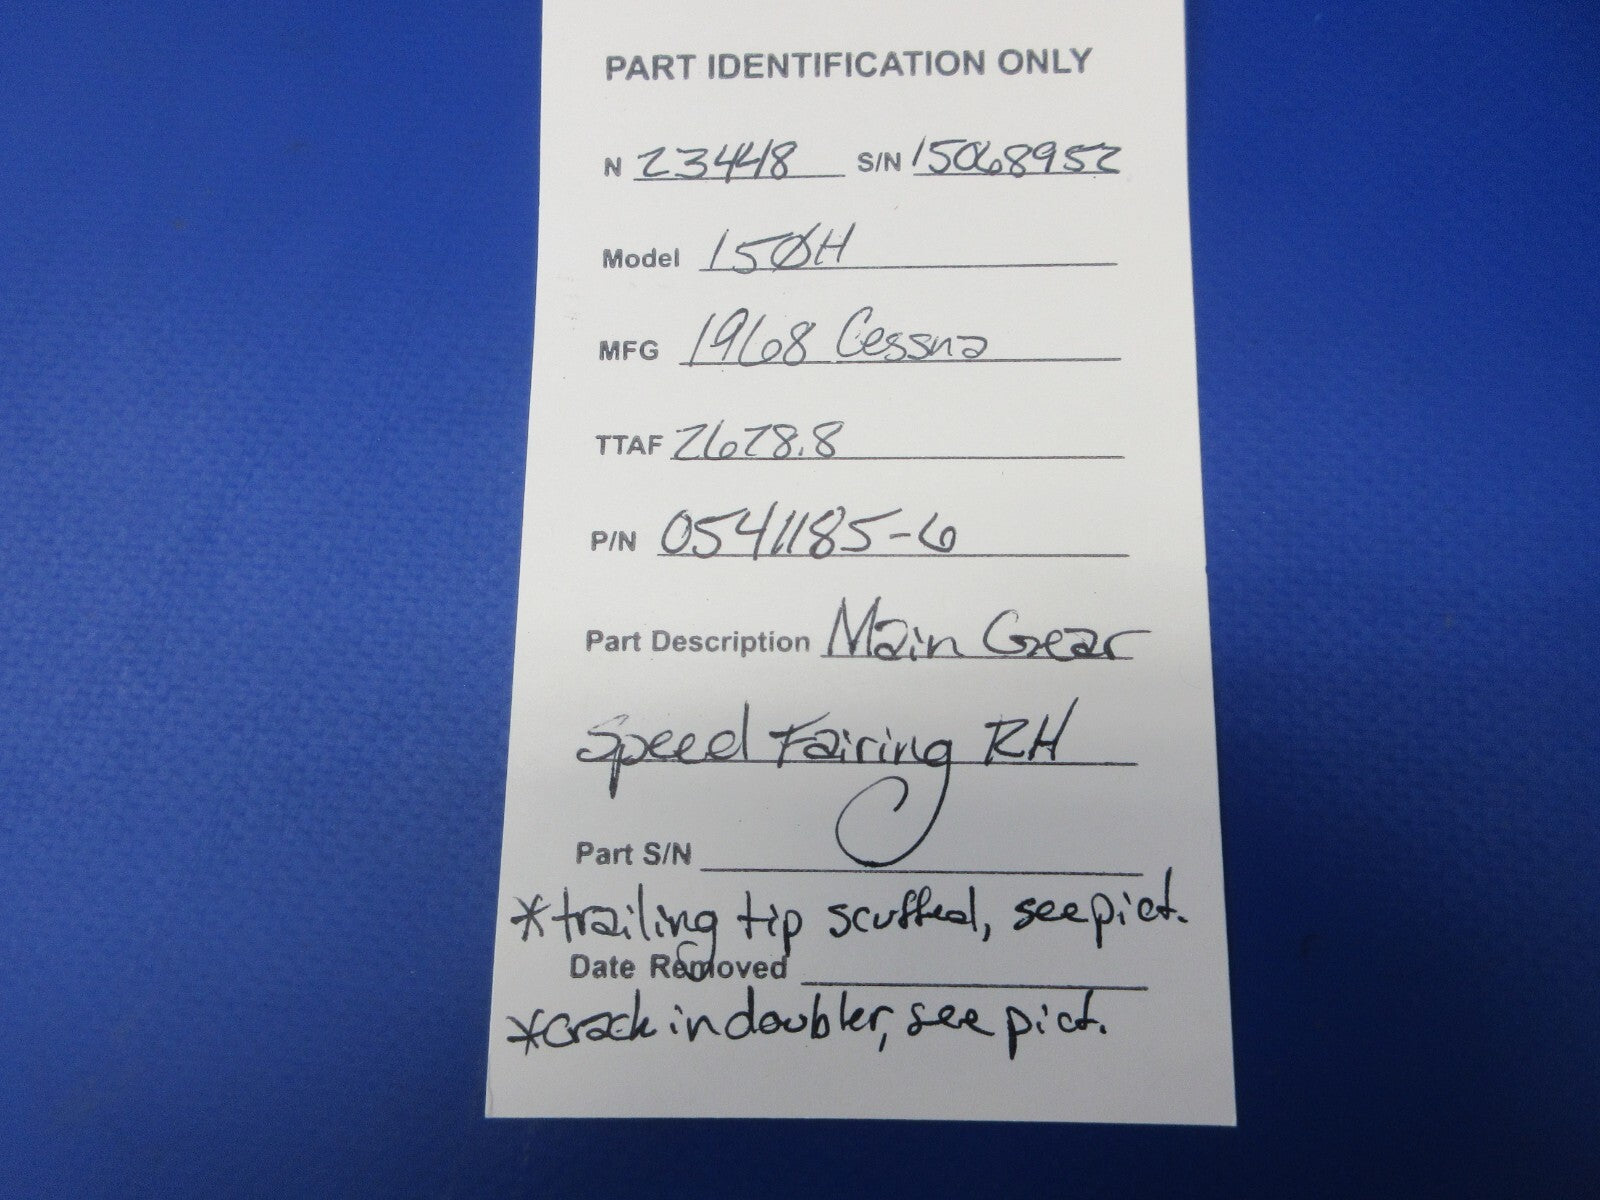 PART IDENTIFICATION ONLY
N 23448 S/N 15068952
Model 150H
MFG 1968 Cessna
TTAF 2628.8
P/N 0541185-6
Part Description Main Gear
Speed Fairing RH
Part S/N
*trailing tip scuffed, see pict.
Date Removed
*crack in doubler, see pict.